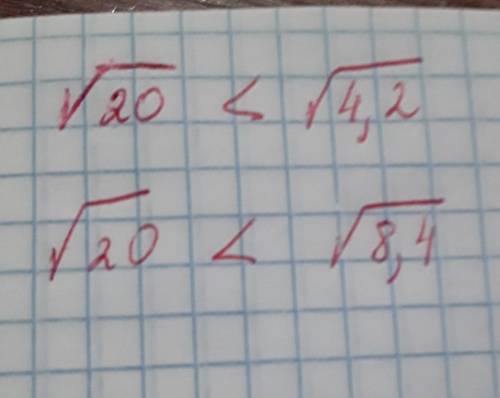 √20 < √4,2
√20 < √8,4